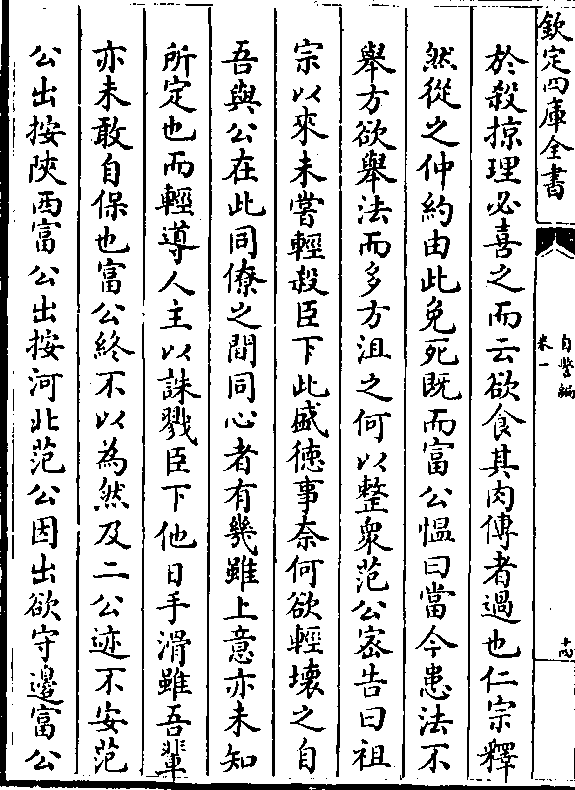 欽定四庫全書
自警編
卷一
十四
於殺掠理必喜之而云欲食其肉傳者過也仁宗釋
然從之仲約由此免死既而富公愠曰當今患法不
舉方欲舉法而多方沮之何以整衆范公宻告曰祖
宗以來未嘗輕殺臣下此盛徳事奈何欲輕壊之自
吾與公在此同僚之間同心者有幾雖上意亦未知
所定也而輕導人主以誅戮臣下他日手滑雖吾輩
亦未敢自保也富公終不以為然及二公迹不安范
公出按陜西富公出按河北范公因出欲守邊富公